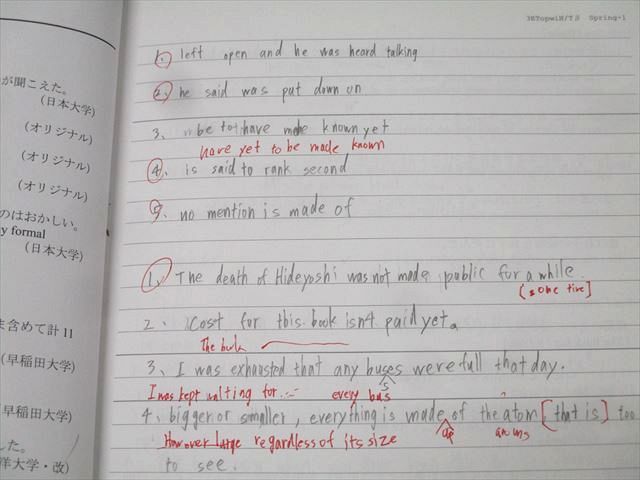 3ETopwiN/TB Spring-1
1. left open and he was heard talking
が聞こえた。
(日本大学)
2. he said was put down on
(オリジナル)
3. be to have made known yet
have yet to be made known
(オリジナル)
4. is said to rank second
(オリジナル)
5. no mention is made of
のはおかしい。
y formal
(日本大学)
1. The death of Hideyoshi was not made public for a while.
[some time]
ま含めて計 11
2. Cost for this book isn't paid yet.
The
(早稲田大学)
3. I was exhausted that any buses were full that day.
I was kept waiting for every bus
(早稲田大学)
4. bigger or smaller, everything is made of the atom [that is] too
However large regardless of its size up
した。
to see.
洋大学・改)